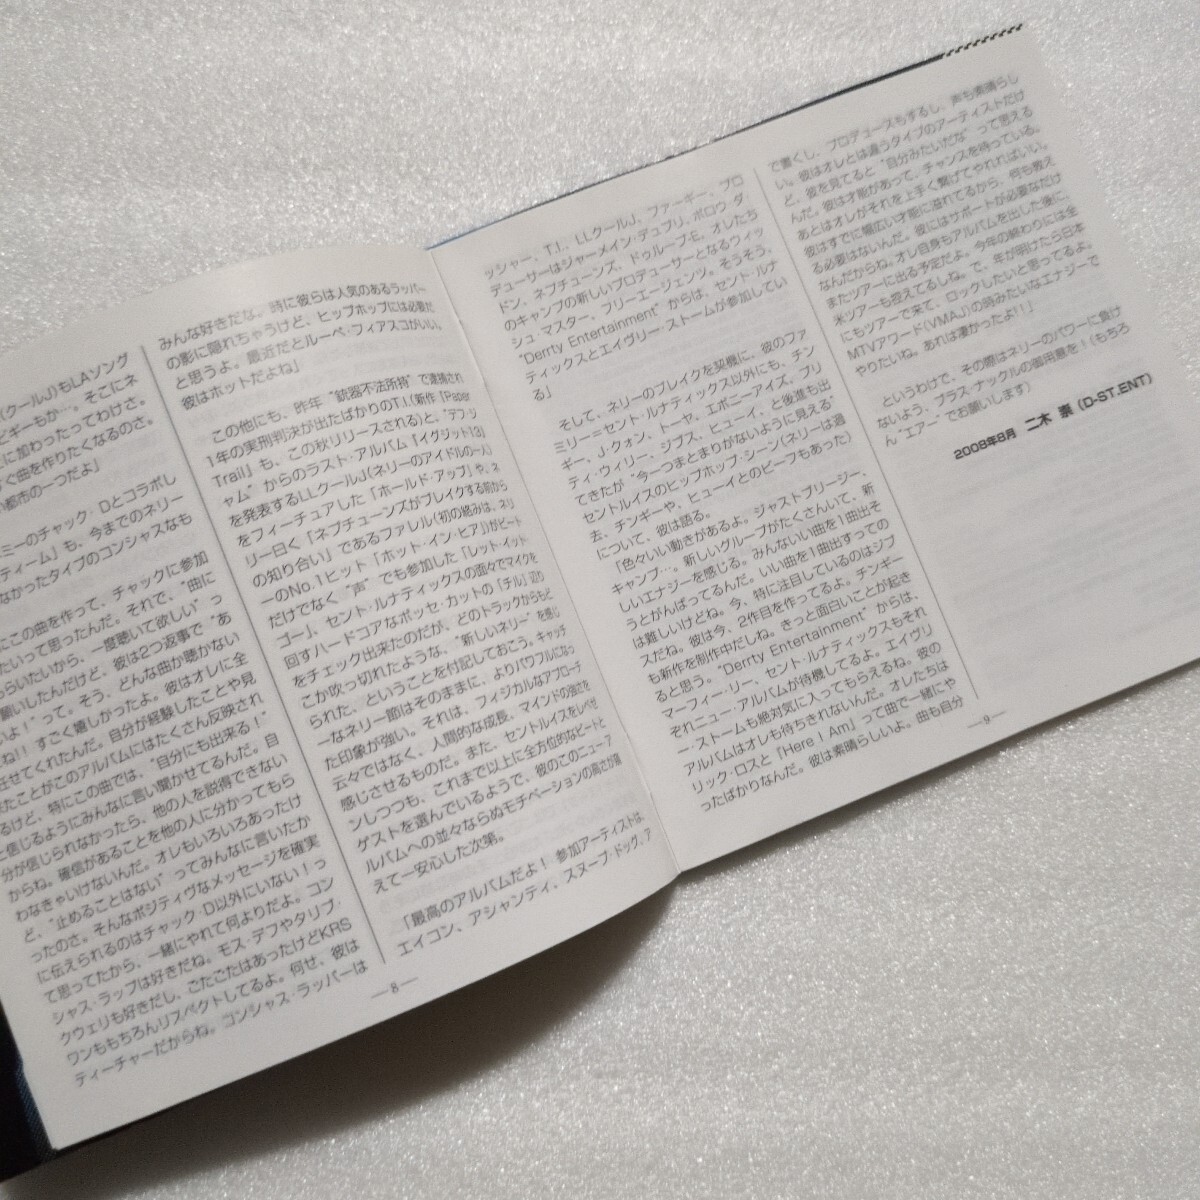 (クールJ)もLAソング
ビギーもか…。そこにネ
に加わったってわけさ。
く曲を作りたくなるのさ。
都市の一つだよ」
ミーのチャック・Dとコラボし
ティーム」も、今までのネリー
なかったタイプのコンシャスなも
にこの曲を作って、チャックに参加
たいって思ったんだ。それで、"曲に
もらいたいから、一度聴いて欲しい"っ
願いしたんだけど、彼は2つ返事で"あ
いよ!"って。そう、どんな曲か聴かない
ね!! すごく嬉しかったよ。彼はオレに全
任せてくれたんだ。自分が経験したことや見
たことがこのアルバムにはたくさん反映され
るけど、特にこの曲では、"自分にも出来る!"
と信じるようにみんなに言い聞かせてるんだ。自
分が信じられなかったら、他の人を説得できない
からね。確信があることを他の人に分かってもら
わなきゃいけないんだ。オレもいろいろあったけ
ど、"止めることはない"ってみんなに言いたか
ったのさ。そんなポジティヴなメッセージを確実
に伝えられるのはチャック・D以外にいない!っ
て思ってたから、一緒にやれて何よりだよ。コン
シャス・ラップは好きだね。モス・デフやタリブ・
クウェリも好きだし、ごたごたはあったけどKRS
ワンももちろんリスペクトしてるよ。何せ、彼は
ティーチャーだからね。コンシャス・ラッパーは
みんな好きだな。時に彼らは人気のあるラッパー
の影に隠れちゃうけど、ヒップホップには必要だ
と思うよ。最近だとルーペ・フィアスコがいい。
彼はホットだよね」
この他にも、昨年"銃器不法所持"で逮捕され
1年の実刑判決が出たばかりのT.I.(新作『Paper
Trail』も、この秋リリースされる)と、"デフ・ジ
ャム"からのラスト・アルバム『イグジット13』
を発表するLLクールJ(ネリーのアイドルの一人)
をフィーチュアした「ホールド・アップ」や、ネ
リー曰く「ネプチューンズがブレイクする前から
の知り合い」であるファレル(初の絡みは、ネリ
ーのNo.1ヒット「ホット・イン・ヒア」)がビート
だけでなく"声"でも参加した「レット・イット・
ゴー」、セント・ルナティックスの面々でマイクを
回すハードコアなポッセ・カットの「チル」辺り
をチェック出来たのだが、どのトラックからもど
こか吹っ切れたような、"新しいネリー"を感じ
られた、ということを付記しておこう。キャッチ
ーなネリー節はそのままに、よりパワフルになっ
た印象が強い。それは、フィジカルなアプローチ
云々ではなく、人間的な成長、マインドの強さを
感じさせるものだ。また、セントルイスをレペゼ
ンしつつも、これまで以上に全方位的なビートと
ゲストを選んでいるようで、彼のこのニュー・ア
ルバムへの並々ならぬモチベーションの高さが窺
えて一安心した次第。
「最高のアルバムだよ! 参加アーティストは、
エイコン、アシャンティ、スヌープ・ドッグ、ア
—8—
ッシャー、T.I.、LLクールJ、ファーギー、プロ
デューサーはジャーメイン・デュプリ、ポロウ・ダ・
ドン、ネプチューンズ、ドゥループ・E、オレたち
のキャンプの新しいプロデューサーとなるウィッ
シュ・マスター、フリーエージェンツ。そうそう、
"Derrty Entertainment"からは、セント・ルナ
ティックスとエイヴリー・ストームが参加してい
る」
そして、ネリーのブレイクを契機に、彼のファ
ミリー=セント・ルナティックス以外にも、チン
ギー、J・クォン、トーヤ、エボニー・アイズ、プリ
ティ・ウィリー、ジブス、ヒューイ、と後進も出
てきたが"今一つまとまりがないように見える"
セントルイスのヒップホップ・シーン(ネリーは過
去、チンギーや、ヒューイとのビーフもあった)
について、彼は語る。
「色々いい動きがあるよ。ジャストブリージー、
キャンプ…。新しいグループがたくさんいて、新
しいエナジーを感じる。みんないい曲を1曲出そ
うとがんばってるんだ。いい曲を1曲出すっての
は難しいけどね。今、特に注目しているのはジブ
スだね。彼は今、2作目を作ってるよ。チンギー
も新作を制作中だしね。きっと面白いことが起き
ると思う。"Derrty Entertainment"からは、
マーフィー・リー、セント・ルナティックスもそれ
ぞれニュー・アルバムが待機してるよ。エイヴリ
ー・ストームも絶対気に入ってもらえるね。彼の
アルバムはオレも待ちきれないんだ。オレたちは
リック・ロスと「Here I Am」って曲で一緒にや
ったばかりなんだ。彼は素晴らしいよ。曲も自分
で書くし、プロデュースもするし、声も素晴らし
い。彼はオレとは違うタイプのアーティストだけ
ど、彼を見てると"自分みたいだな"って思える
んだ。彼は才能があって、チャンスを待っている。
あとはオレがそれを上手く繋げてやれればいい。
彼はすでに幅広い才能に溢れてるから、何も教え
る必要はないんだ。彼にはサポートが必要なだけ
なんだからね。オレ自身もアルバムを出した後に、
またツアーに出る予定だよ。今年の終わりには全
米ツアーも控えてるしね。で、年が明けたら日本
にもツアーで来て、ロックしたいと思ってるよ。
MTVアワード(VMAJ)の時みたいなエナジーで
やりたいね。あれは凄かったよ!!」
というわけで、その際はネリーのパワーに負け
ないよう、ブラス・ナックルの御用意を!(もちろ
ん"エアー"でお願いします)
2008年8月 二木 崇(D-ST.ENT)
—9—